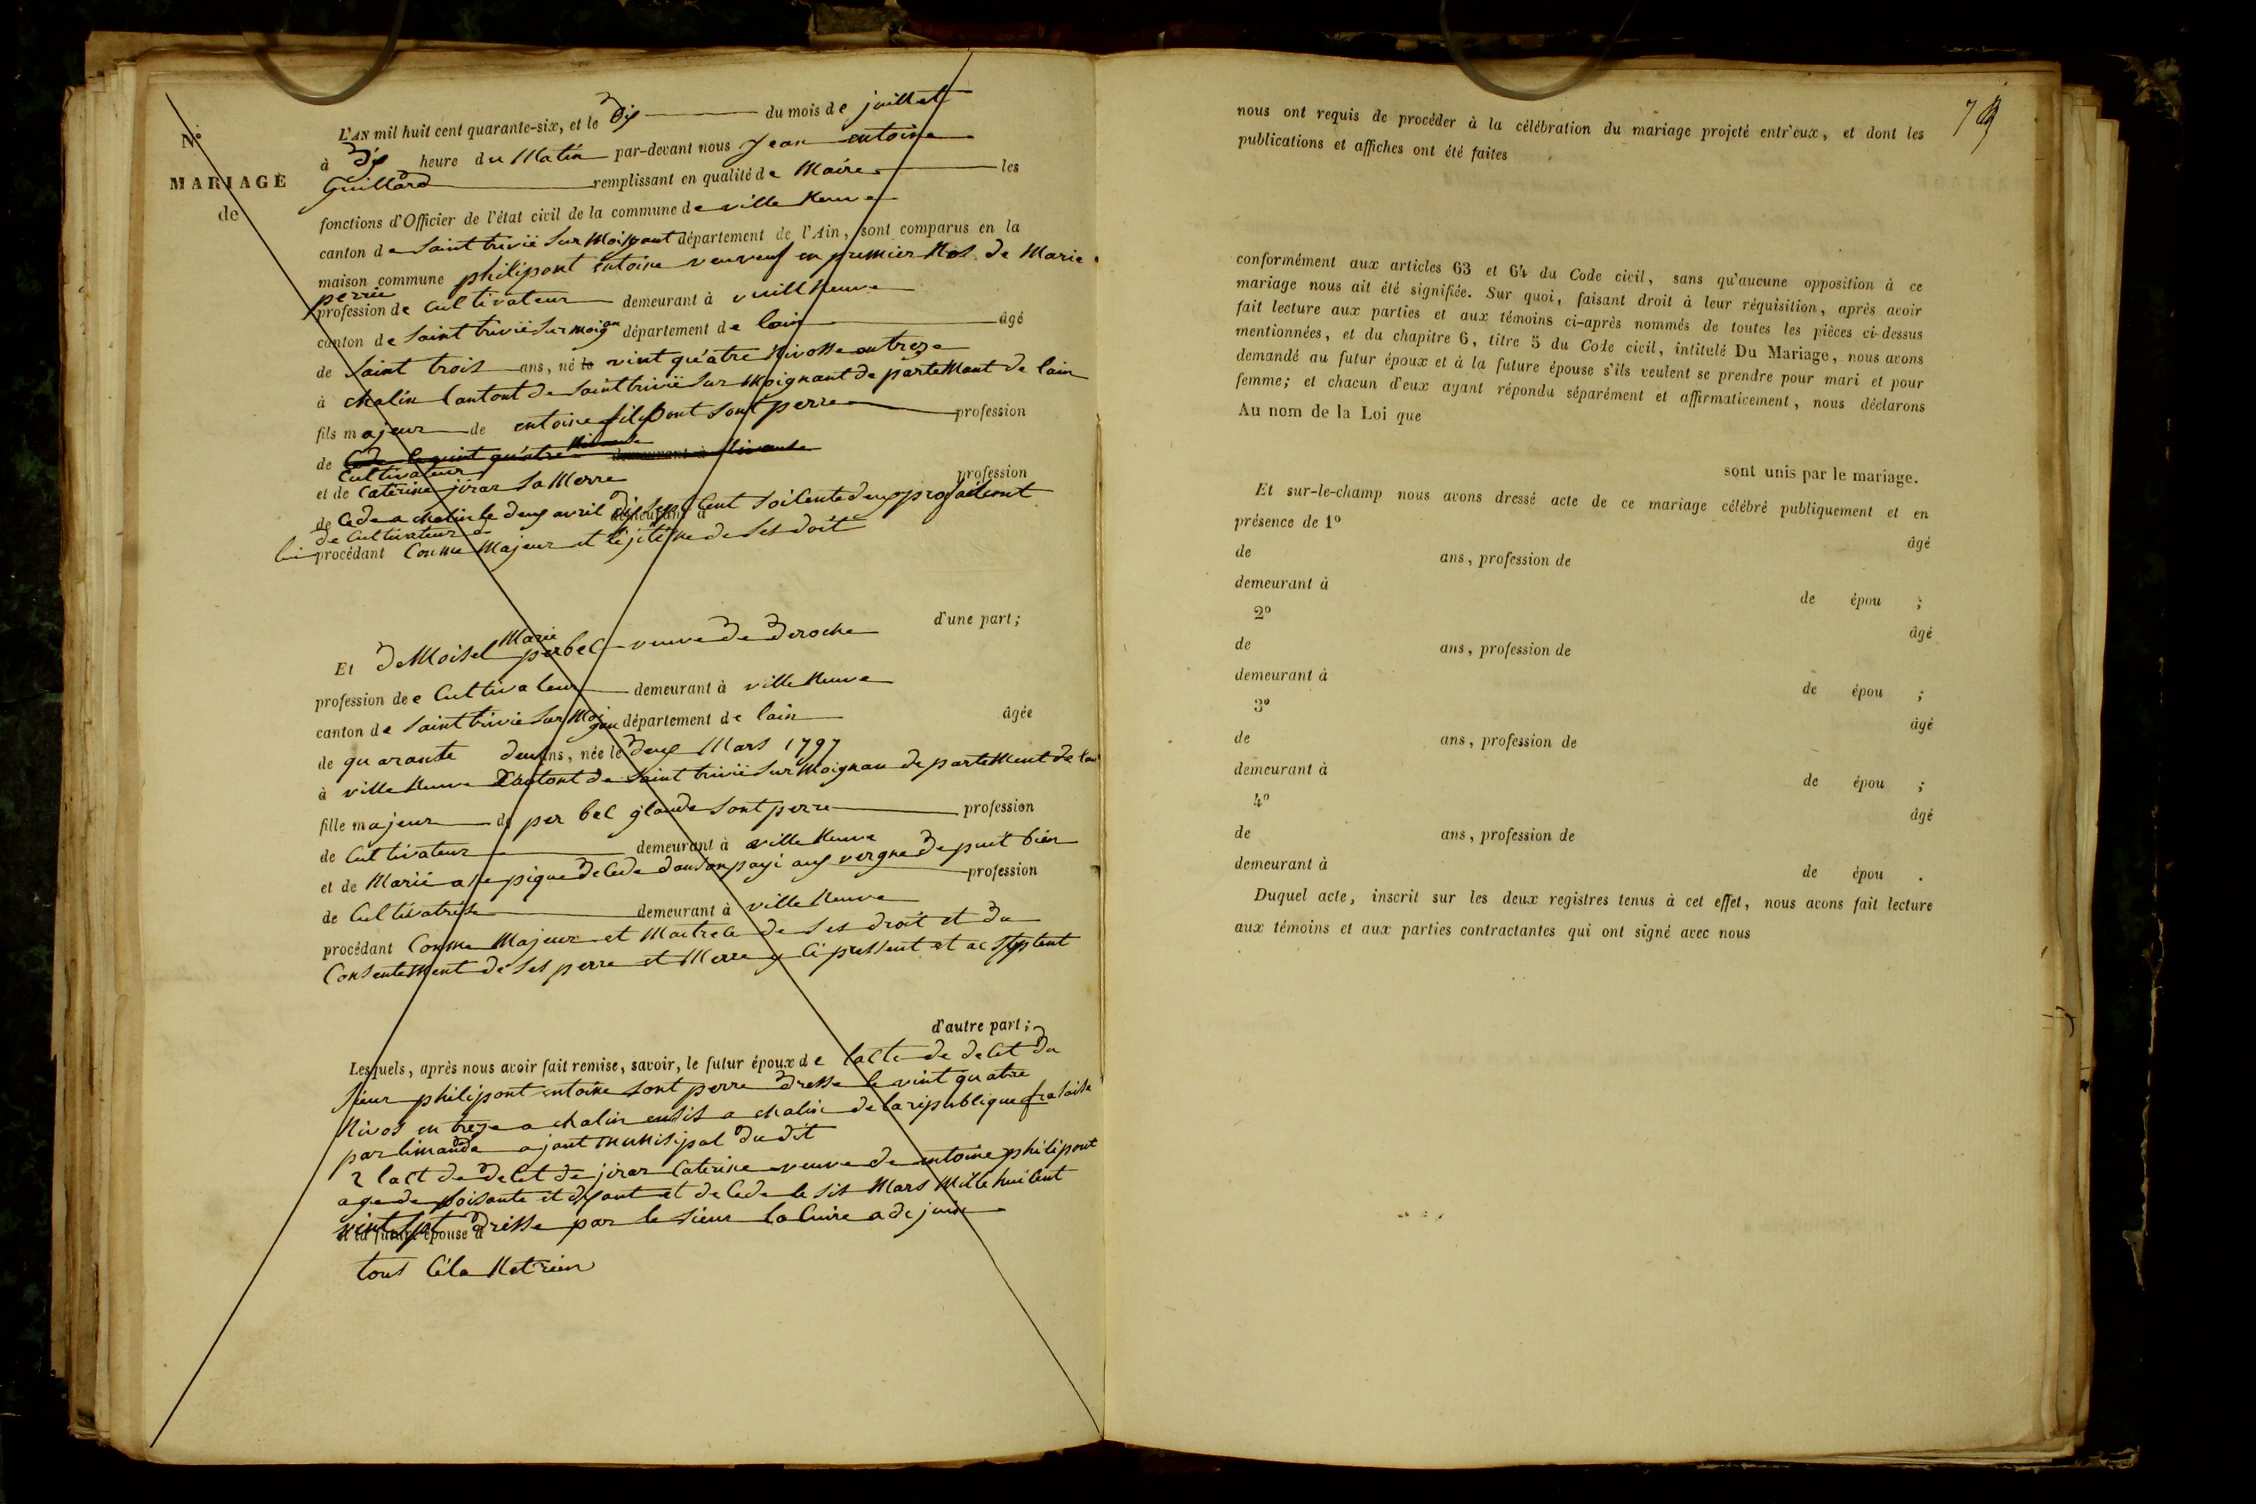 N°
MARIAGE
de
L'AN mil huit cent quarante-six, et le Dix du mois de juillet
à Dix heure du Matin par-devant nous Jean entoine
Guillard remplissant en qualité de Maire les
fonctions d'Officier de l'état civil de la commune de ville Neuve
canton de saint trivié sur Moignant département de l'Ain, sont comparus en la
maison commune philipont entoine veuveuf en premier Nos de Marie
perrie
profession de Cultivateur demeurant à vuill Neuve
canton de saint trivié sur moignan département de lain âgé
de saint trois ans, né le vint quatre Nivosse en treze
à chalin Cantont de saint trivié sur Moignant de parteMant de lain
fils majeur de entoine filipont sont perre profession
de
Cultivateur
et de Caterine jirar sa Merre profession
de Cede a chalin le deux avril dix sept Cent soisente deux profaitient demeurant à
de Cultivateur
lui procédant Comme Majeur et léjiteme de ses doit
d'une part;
Et DeMoisel Marie perbel veuve De Deroche
profession de e Cultivateur demeurant à ville Neuve
canton de saint trivié sur Moignan département de lain âgée
de quarante deux ans, née le Deux Mars 1797
à ville Neuve Cantont de saint trivié sur Moignan de parteMent de lain
fille majeur de per bel glaude sont perre profession
de Cultivateur demeurant à ville Neuve
et de Marie ane pique de Cede dans son payi aux vergne De puit bien profession
de Cultivatrise demeurant à ville Neuve
procédant Comme Majeur et Maitrece de ses droit et du
ConsenteMent de ses perre et Merre y Ci pressent et acseptent
d'autre part;
Lesquels, après nous avoir fait remise, savoir, le futur époux de lacte de deCet du
sieur philipont entoine sont perre Dresse le vint quatre
Nivos en treze a chalin ensis a chalin de la répiublique fransaise
par limanda ajoint muNisipal du dit
2 lact de deCet de jirar Caterine veuve de entoine philipont
age de soisante et dix ant et de Cede le sis Mars Mille hui Cent
vint sept Dresse par le sieur la Cuire adejoin
et la future épouse d
tout Céla Net rien
79
nous ont requis de procéder à la célébration du mariage projeté entr'eux, et dont les
publications et affiches ont été faites
conformément aux articles 63 et 64 du Code civil, sans qu'aucune opposition à ce
mariage nous ait été signifiée. Sur quoi, faisant droit à leur réquisition, après avoir
fait lecture aux parties et aux témoins ci-après nommés de toutes les pièces ci-dessus
mentionnées, et du chapitre 6, titre 5 du Code civil, intitulé Du Mariage, nous avons
demandé au futur époux et à la future épouse s'ils veulent se prendre pour mari et pour
femme; et chacun d'eux ayant répondu séparément et affirmativement, nous déclarons
Au nom de la Loi que
sont unis par le mariage.
Et sur-le-champ nous avons dressé acte de ce mariage célébré publiquement et en
présence de 1° âgé
de ans, profession de
demeurant à de épou ;
2° âgé
de ans, profession de
demeurant à de épou ;
3° âgé
de ans, profession de
demeurant à de épou ;
4° âgé
de ans, profession de
demeurant à de épou .
Duquel acte, inscrit sur les deux registres tenus à cet effet, nous avons fait lecture
aux témoins et aux parties contractantes qui ont signé avec nous